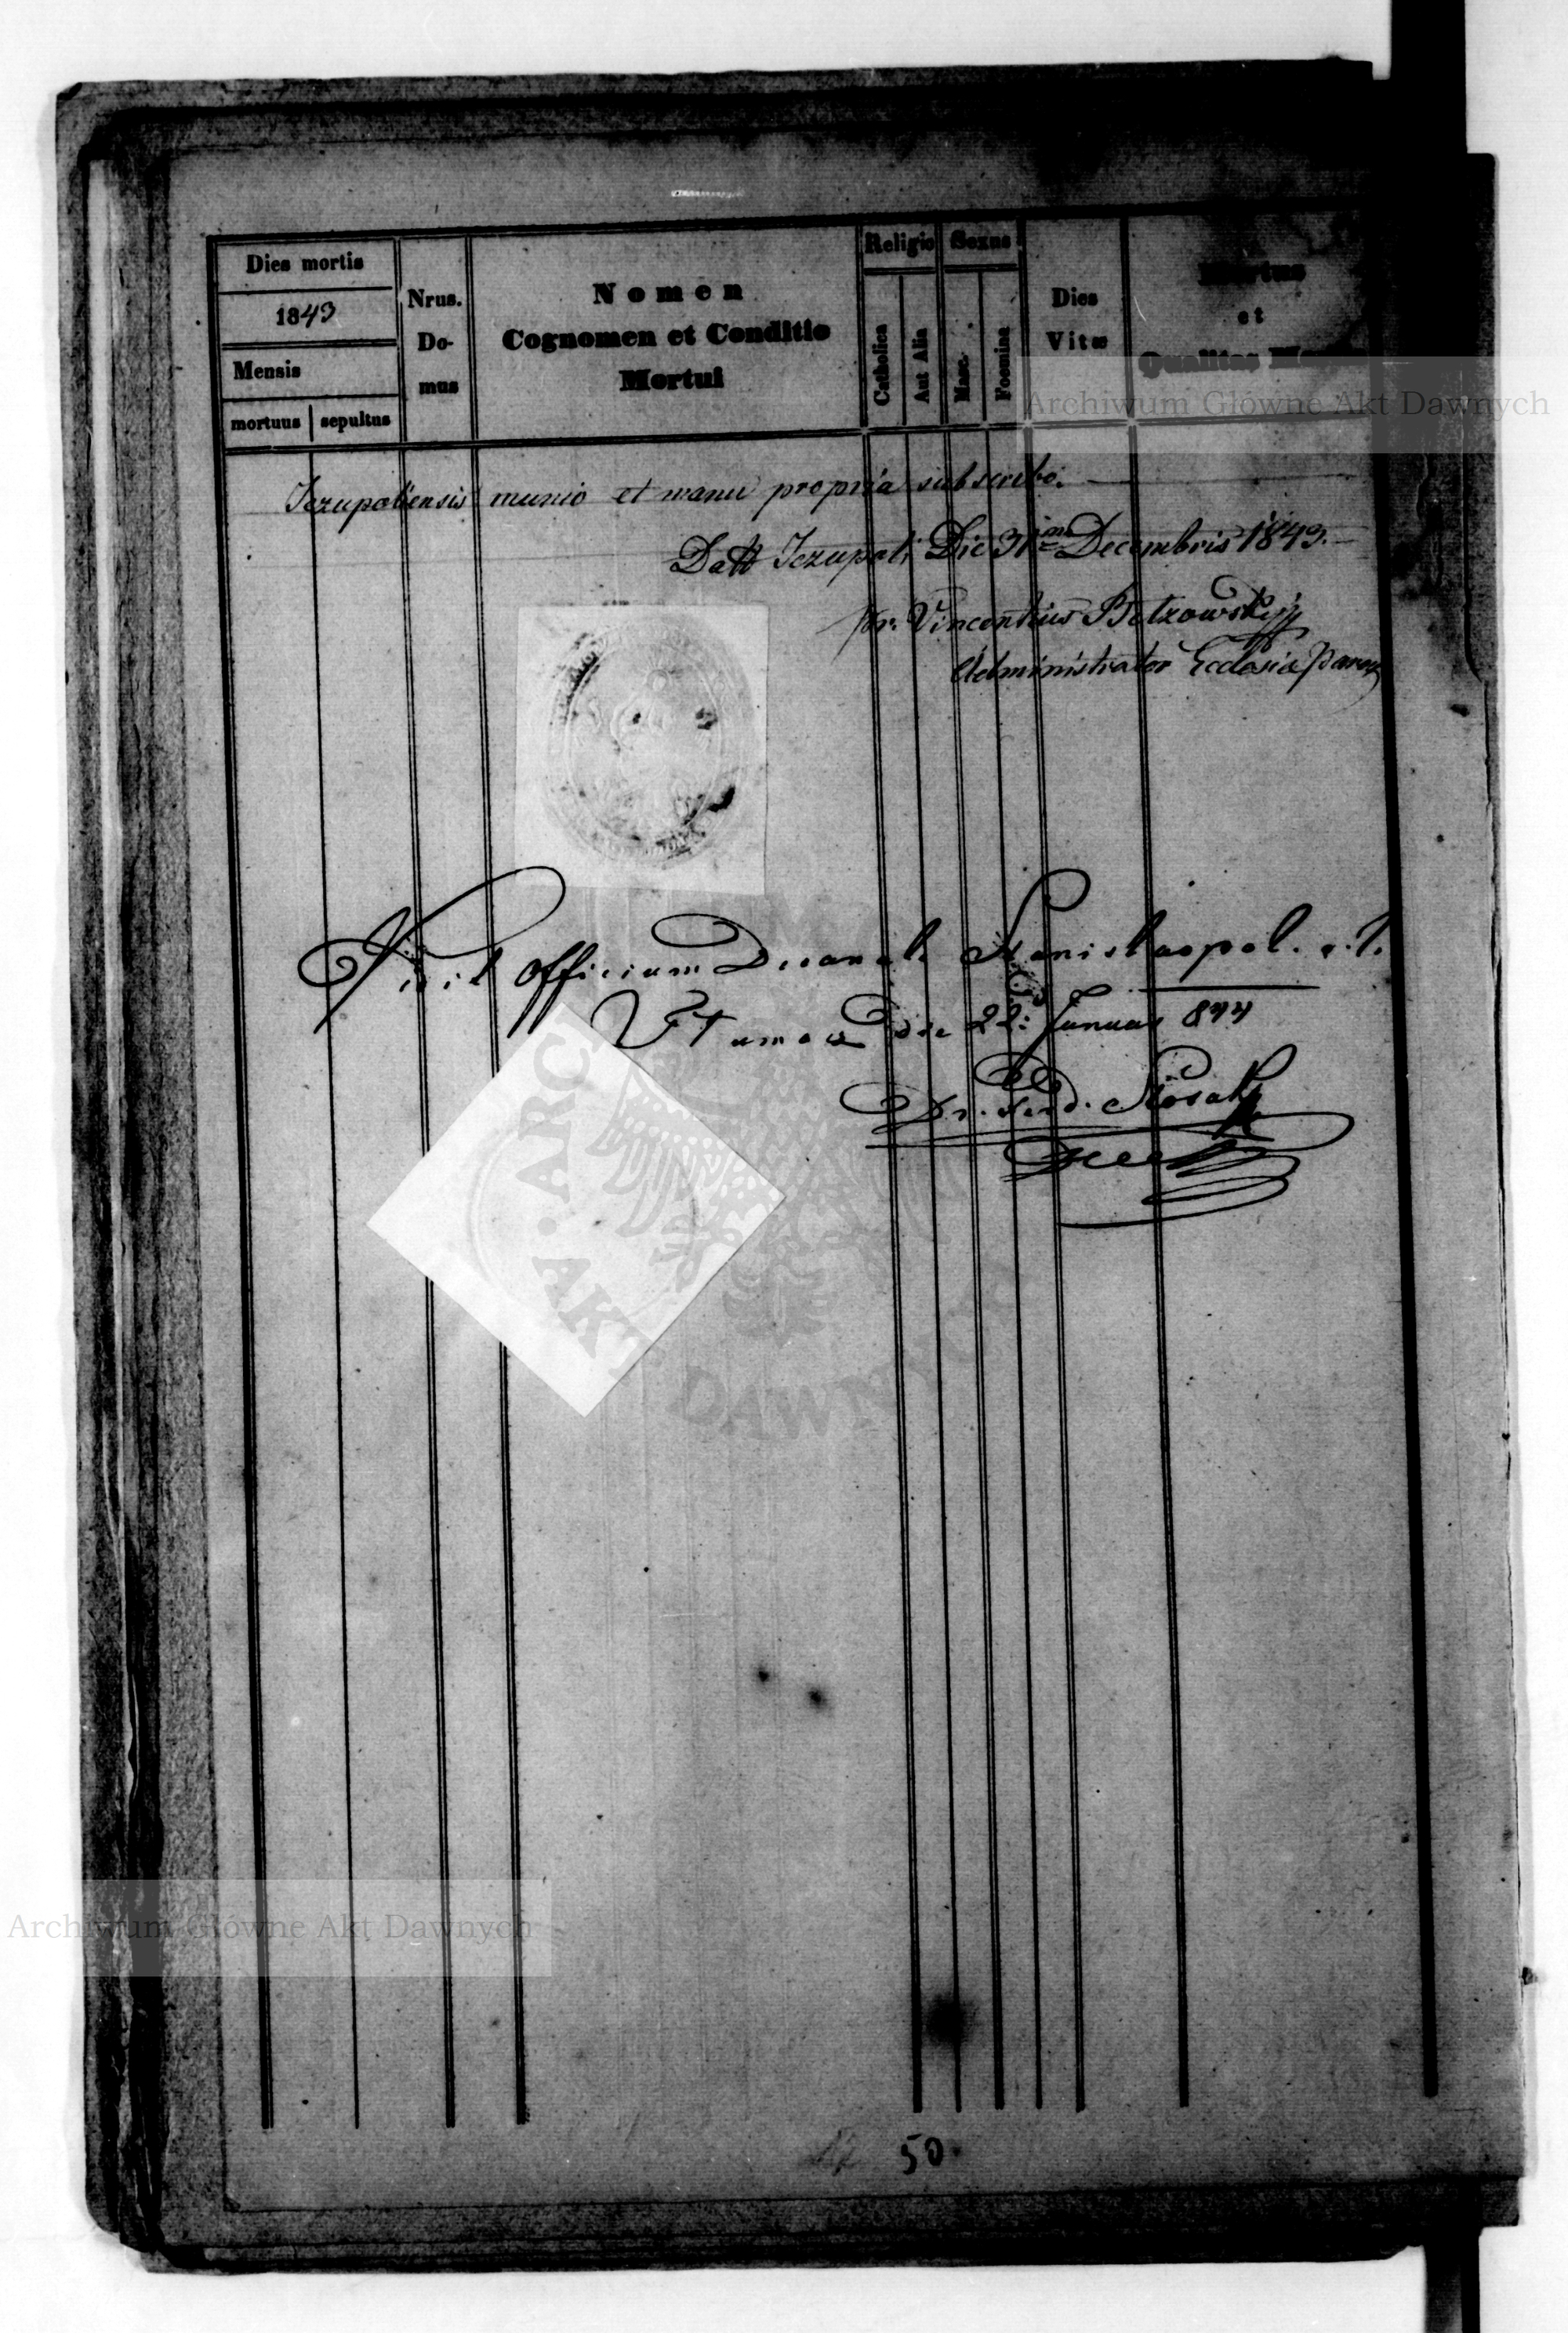 Dies mortis
1843
Mensis
mortuus sepultus
Nrus.
Do-
mus
Nomen
Cognomen et Conditio
Mortui
Religio
Catholica
Aut Alia
Sexus
Masc.
Foemina
Dies
Vitæ
et
Qualitas
Archiwum Główne Akt Dawnych
Jezupoliensis munio et manu propria subscribo.
Datt Jezupoli Die 31ma Decembris 1843.
Fr. Vincentius
Administrator Ecclesiæ
Vidit Officium Decanale Stanislaopol. r. l.
die 22: Januar 844
Dr. Ferd.
ARC
AKT DAWNYCH
Archiwum Główne Akt Dawnych
50